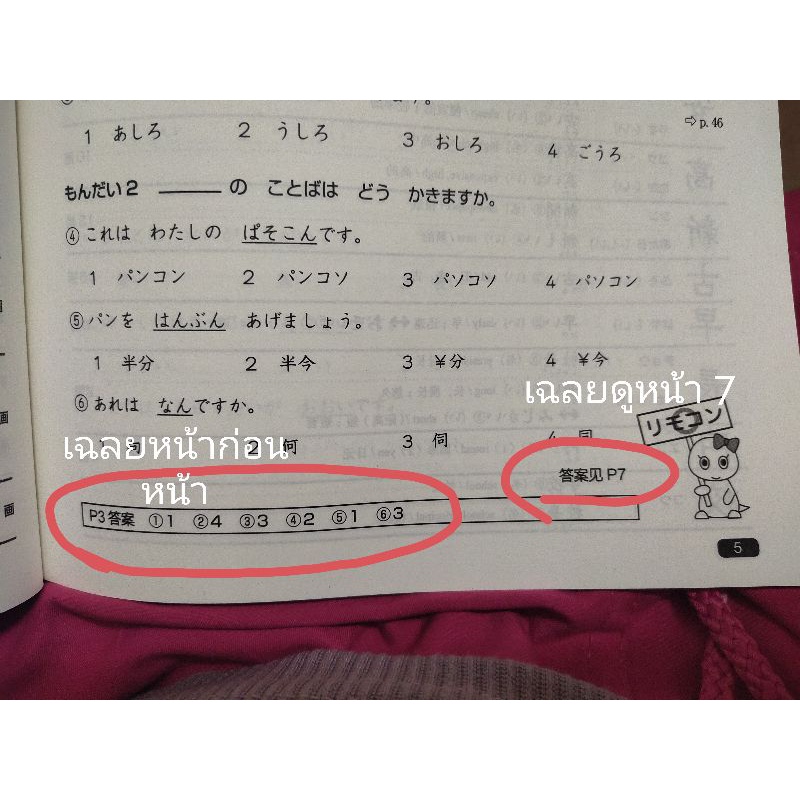 ⇨p.46
1 あしろ 2 うしろ 3 おしろ 4 ごうろ
もんだい2 ＿＿＿の ことばは どう かきますか。
④これは わたしの ぱそこんです。
1 パンコン 2 パンコソ 3 パソコソ 4 パソコン
⑤パンを はんぶん あげましょう。
1 半分 2 半今 3 ￥分 4 ￥今
⑥あれは なんですか。
เฉลยดูหน้า 7
リモコン
2 何 3 伺 4
เฉลยหน้าก่อน
หน้า
答案见 P7
P3答案 ①1 ②4 ③3 ④2 ⑤1 ⑥3
5